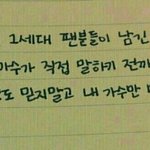 1세대 팬분들이 남긴
가수가 직접 말하기 전까
도 믿지말고 내 가수만